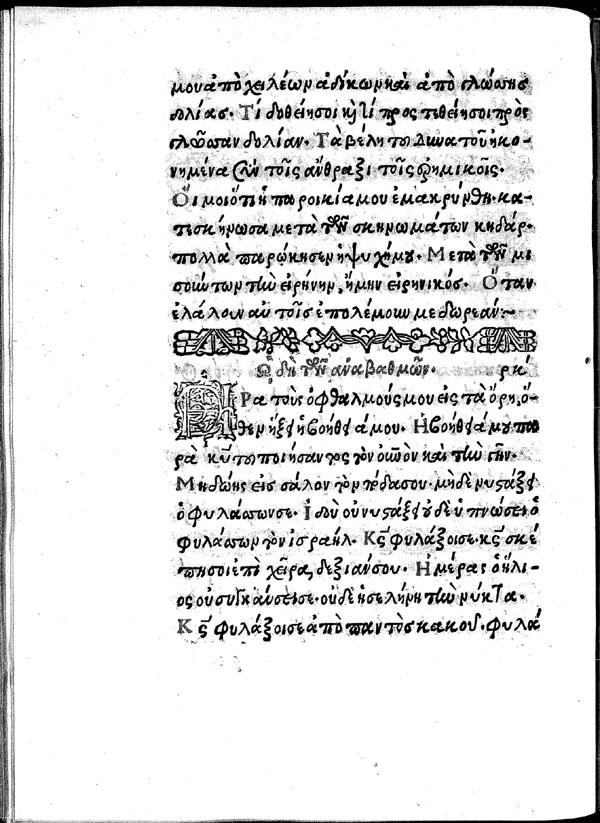 μου ἀπὸ χειλέων ἀδίκων καὶ ἀπὸ γλώσσης
δολίας. Τί δοθείη σοι κ τί προστεθείη σοι πρὸς
γλῶσσαν δολίαν. Τὰ βέλη του δυνατοῦ ἠκο-
νημένα σὺν τοῖς ἄνθραξι τοῖς ἐρημικοῖς.
Οἴμοι ὅτι ἡ παροικία μου ἐμακρύνθη. κα-
τεσκήνωσα μετὰ τῶν σκηνωμάτων κηδάρ.
πολλὰ παρῴκησεν ἡ ψυχή μου. Μετὰ τῶν μι
σούντων τὴν εἰρήνην, ἤμην εἰρηνικός. Ὅταν
ἐλάλουν αὐτοῖς ἐπολέμουν με δωρεάν:~
ᾨδὴ τῶν ἀναβαθμῶν. ρκ
Ηρα τοὺς ὀφθαλμούς μου εἰς τὰ ὄρη, ὅ-
θεν ἥξει ἡ βοήθειά μου. Ἡ βοήθειά μου πα
ρὰ κυ του ποιήσαντος τὸν οὐνὸν καὶ τὴν γῆν.
Μὴ δώῃς εἰς σάλον τὸν πόδα σου. μηδὲ νυστάξει
ὁ φυλάσσων σε. Ἰδοὺ οὐ νυστάξει οὐδὲ ὑπνώσει ὁ
φυλάσσων τὸν ισραήλ. Κς φυλάξει σε. κς σκέ
πη σοι ἐπὶ χεῖρα, δεξιάν σου. Ἡμέρας ὁ ἥλι-
ος οὐ συγκαύσει σε. οὐδὲ ἡ σελήνη τὴν νύκτα.
Κς φυλάξει σε ἀπὸ παντὸς κακοῦ. φυλά